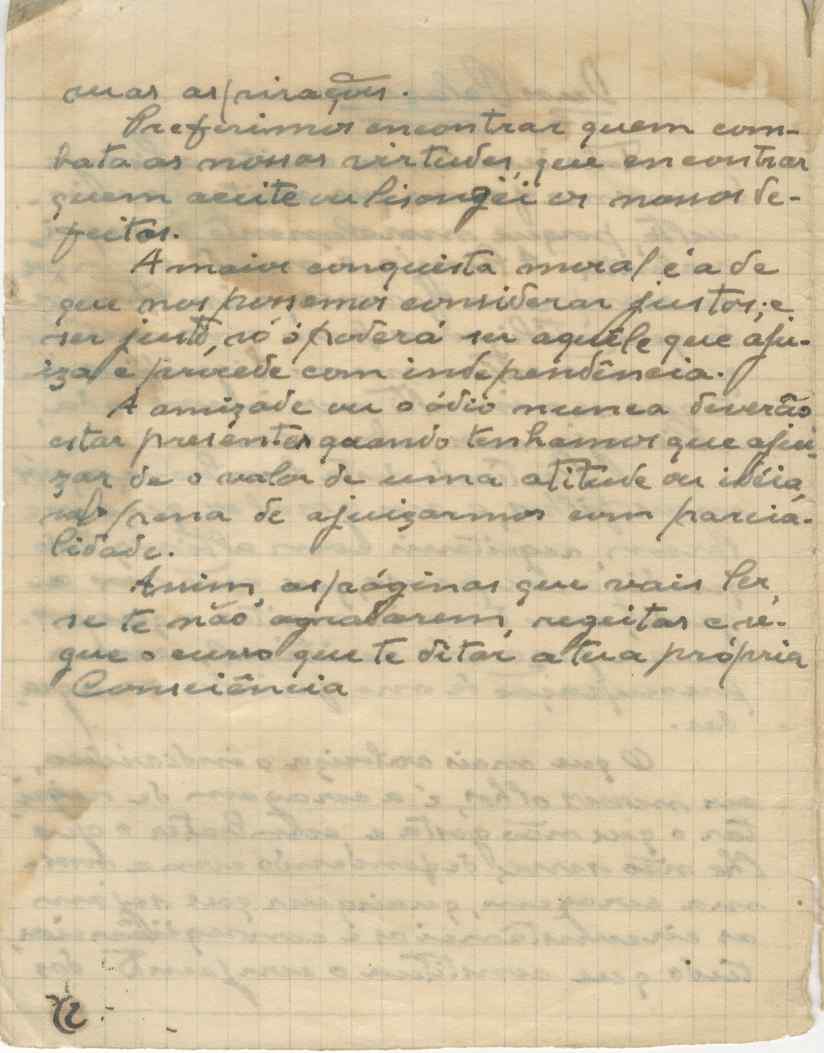 suas aspirações.
Preferimos encontrar quem com-
bata as nossas virtudes, que encontrar
quem aceite ou lisongei os nossos de-
feitos.
A maior conquista moral é a de
que nos possemos considerar justos; e
ser justo, só o poderá ser aquêle que aju-
iza e procede com independência.
A amizade ou o ódio nunca deverão
estar presentes quando tenhamos que ajui-
zar de o valor de uma atitude ou idéia,
sob pena de ajuizarmos com parcia-
lidade.
Assim, as páginas que vais ler,
se te não agradarem, regeitas e se-
gue o curso que te ditar a tua própria
Consciência